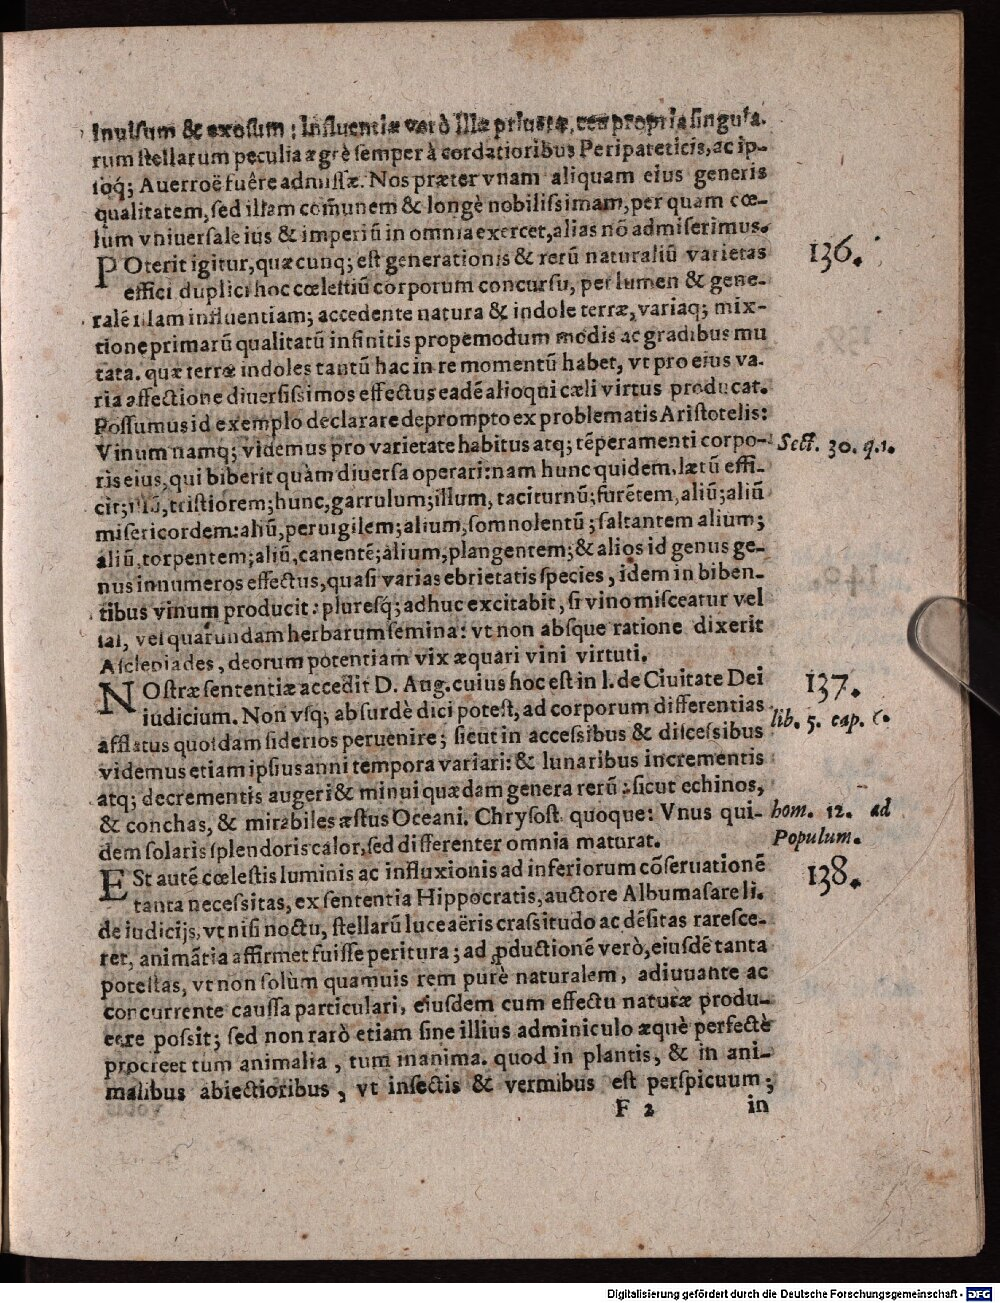 inuisum & exosum: Influentiæ verò illæ priuatæ, ceu propria singula-
rum stellarum peculia ægrè semper à cordatioribus Peripateticis, ac ip-
soq́; Auerroë fuêre admissæ. Nos præter vnam aliquam eius generis
qualitatem, sed illam com̃unem & longè nobilissimam, per quam cœ-
lum vniuersale ius & imperiũ in omnia exercet, alias nõ admiserimus.
POterit igitur, quæcunq; est generationis & rerũ naturaliũ varietas 136.
effici duplici hoc cœlestiũ corporum concursu, per lumen & gene-
ralẽ illam influentiam; accedente natura & indole terræ, variaq; mix-
tione primarũ qualitatũ infinitis propemodum modis ac gradibus mu
tata. quæ terræ indoles tantũ hac in re momentũ habet, vt pro eius va-
ria affectione diuersissimos effectus eadẽ alioqui cæli virtus producat.
Possumus id exemplo declarare deprompto ex problematis Aristotelis:
Vinum namq; videmus pro varietate habitus atq; tẽperamenti corpo- Sect. 30. q. 1.
ris eius, qui biberit quàm diuersa operari: nam hunc quidem, lætũ effi-
cit; illũ, tristiorem; hunc, garrulum; illum, taciturnũ; furẽtem, aliũ; aliũ
misericordem: aliũ, peruigilem; alium, somnolentũ; saltantem alium;
aliũ, torpentem; aliũ, canentẽ; alium, plangentem; & alios id genus ge-
nus innumeros effectus, quasi varias ebrietatis species, idem in biben-
tibus vinum producit: pluresq́; adhuc excitabit, si vino misceatur vel
sal, vel quarundam herbarum semina: vt non absque ratione dixerit
Asclepiades, deorum potentiam vix æquari vini virtuti.
NOstræ sententiæ accedit D. Aug. cuius hoc est in l. de Ciuitate Dei 137.
iudicium. Non vsq; absurdè dici potest, ad corporum differentias lib. 5. cap. 6.
afflatus quosdam siderios peruenire; sicut in accessibus & discessibus
videmus etiam ipsius anni tempora variari: & lunaribus incrementis
atq; decrementis augeri & minui quædam genera rerũ: sicut echinos,
& conchas, & mirabiles æstus Oceani. Chrysost. quoque: Vnus qui- hom. 12. ad
dem solaris splendoris calor, sed differenter omnia maturat. Populum.
ESt autẽ cœlestis luminis ac influxionis ad inferiorum cõseruationẽ 138.
tanta necessitas, ex sententia Hippocratis, auctore Albumasare li.
de iudicijs, vt nisi noctu, stellarũ luce aëris crassitudo ac dẽsitas raresce-
ret, animãtia affirmet fuisse peritura; ad ꝓductionẽ verò, eiusdẽ tanta
potestas, vt non solùm quamuis rem purè naturalem, adiuuante ac
concurrente caussa particulari, eiusdem cum effectu naturæ produ-
cere possit; sed non rarò etiam sine illius adminiculo æquè perfectè
procreet tum animalia, tum inanima. quod in plantis, & in ani-
malibus abiectioribus, vt insectis & vermibus est perspicuum;
F 2 in
Digitalisierung gefördert durch die Deutsche Forschungsgemeinschaft - DFG